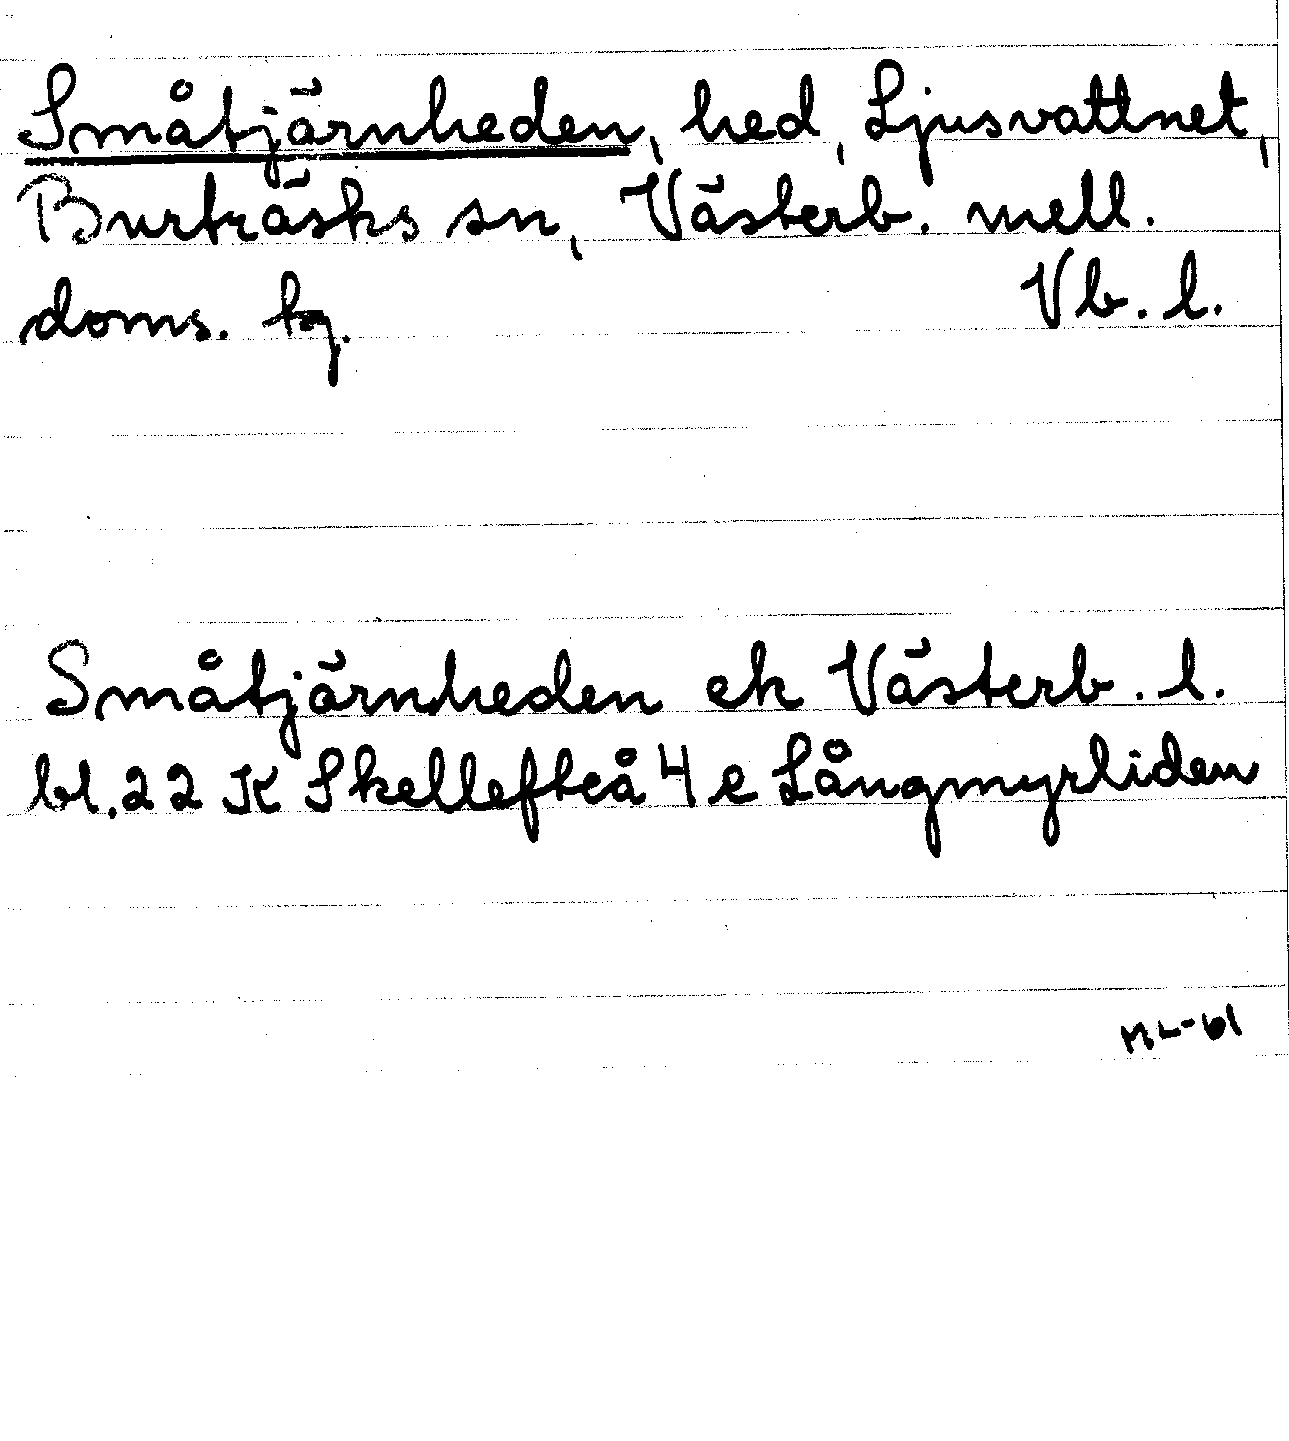 Småtjärnheden, hed, Ljusvattnet,
Burträsks sn, Västerb. mell.
doms. tg. Vb. l.
Småtjärnheden ek Västerb. l.
bl. 22 K Skellefteå 4 e Långmyrliden
ML-61